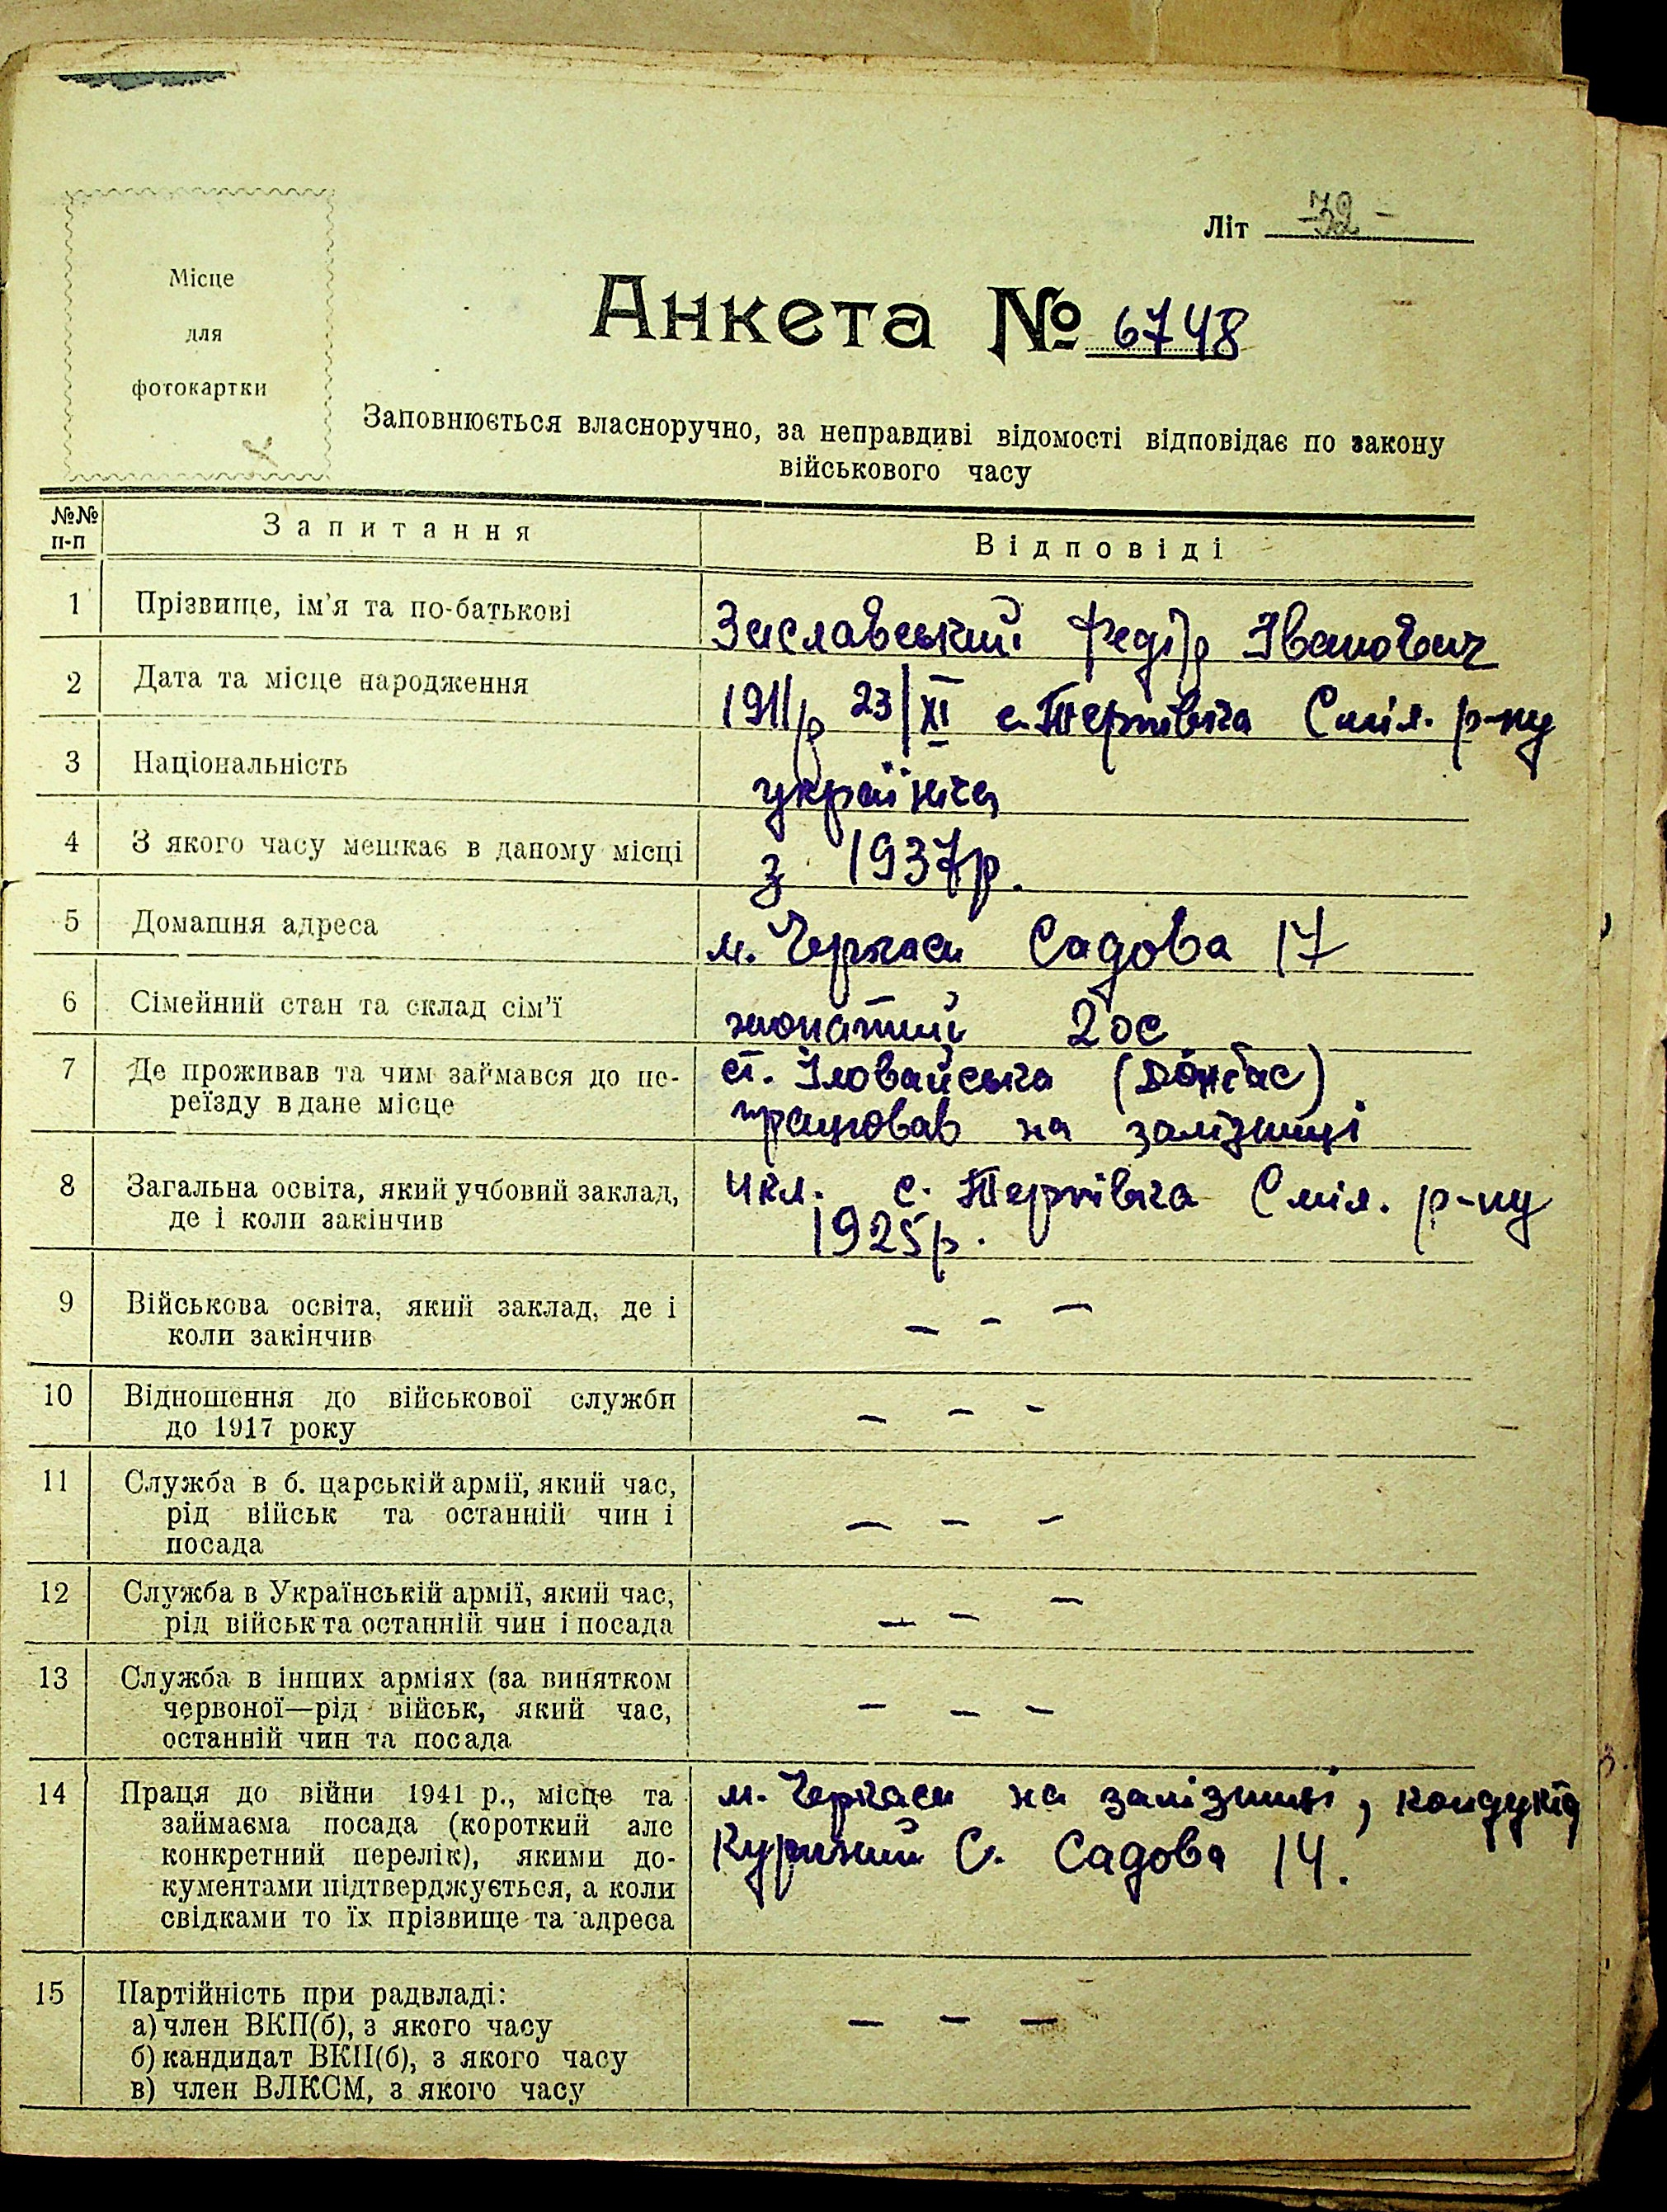 Літ
Місце
для
фотокартки
Анкета № 6748
Заповнюється власноручно, за неправдиві відомості відповідає по закону
військового часу
№№ п-п Запитання Відповіді
1 Прізвище, ім'я та по-батькові Заславський Федір Іванович
2 Дата та місце народження 1911р 23/XI с. Тернівка Сміл. р-ну
3 Національність українец
4 З якого часу мешкає в даному місці з 1937р.
5 Домашня адреса м. Черкаси Садова 17
6 Сімейний стан та склад сім'ї жонатий 2 ос
7 Де проживав та чим займався до пе- ст. Іловайська (Донбас)
реїзду в дане місце працював на залізниці
8 Загальна освіта, який учбовий заклад, 4 кл. с. Тернівка Сміл. р-ну
де і коли закінчив 1925р.
9 Військова освіта, який заклад, де і
коли закінчив – – –
10 Відношення до військової служби
до 1917 року – – –
11 Служба в б. царській армії, який час,
рід військ та останній чин і
посада – – –
12 Служба в Українській армії, який час,
рід військ та останній чин і посада – – –
13 Служба в інших арміях (за винятком
червоної—рід військ, який час,
останній чин та посада – – –
14 Праця до війни 1941 р., місце та м. Черкаси на залізниці, кондуктор
займаєма посада (короткий але С. Садова 14.
конкретний перелік), якими до-
кументами підтверджується, а коли
свідками то їх прізвище та адреса
15 Партійність при радвладі:
а) член ВКП(б), з якого часу – – –
б) кандидат ВКП(б), з якого часу
в) член ВЛКСМ, з якого часу